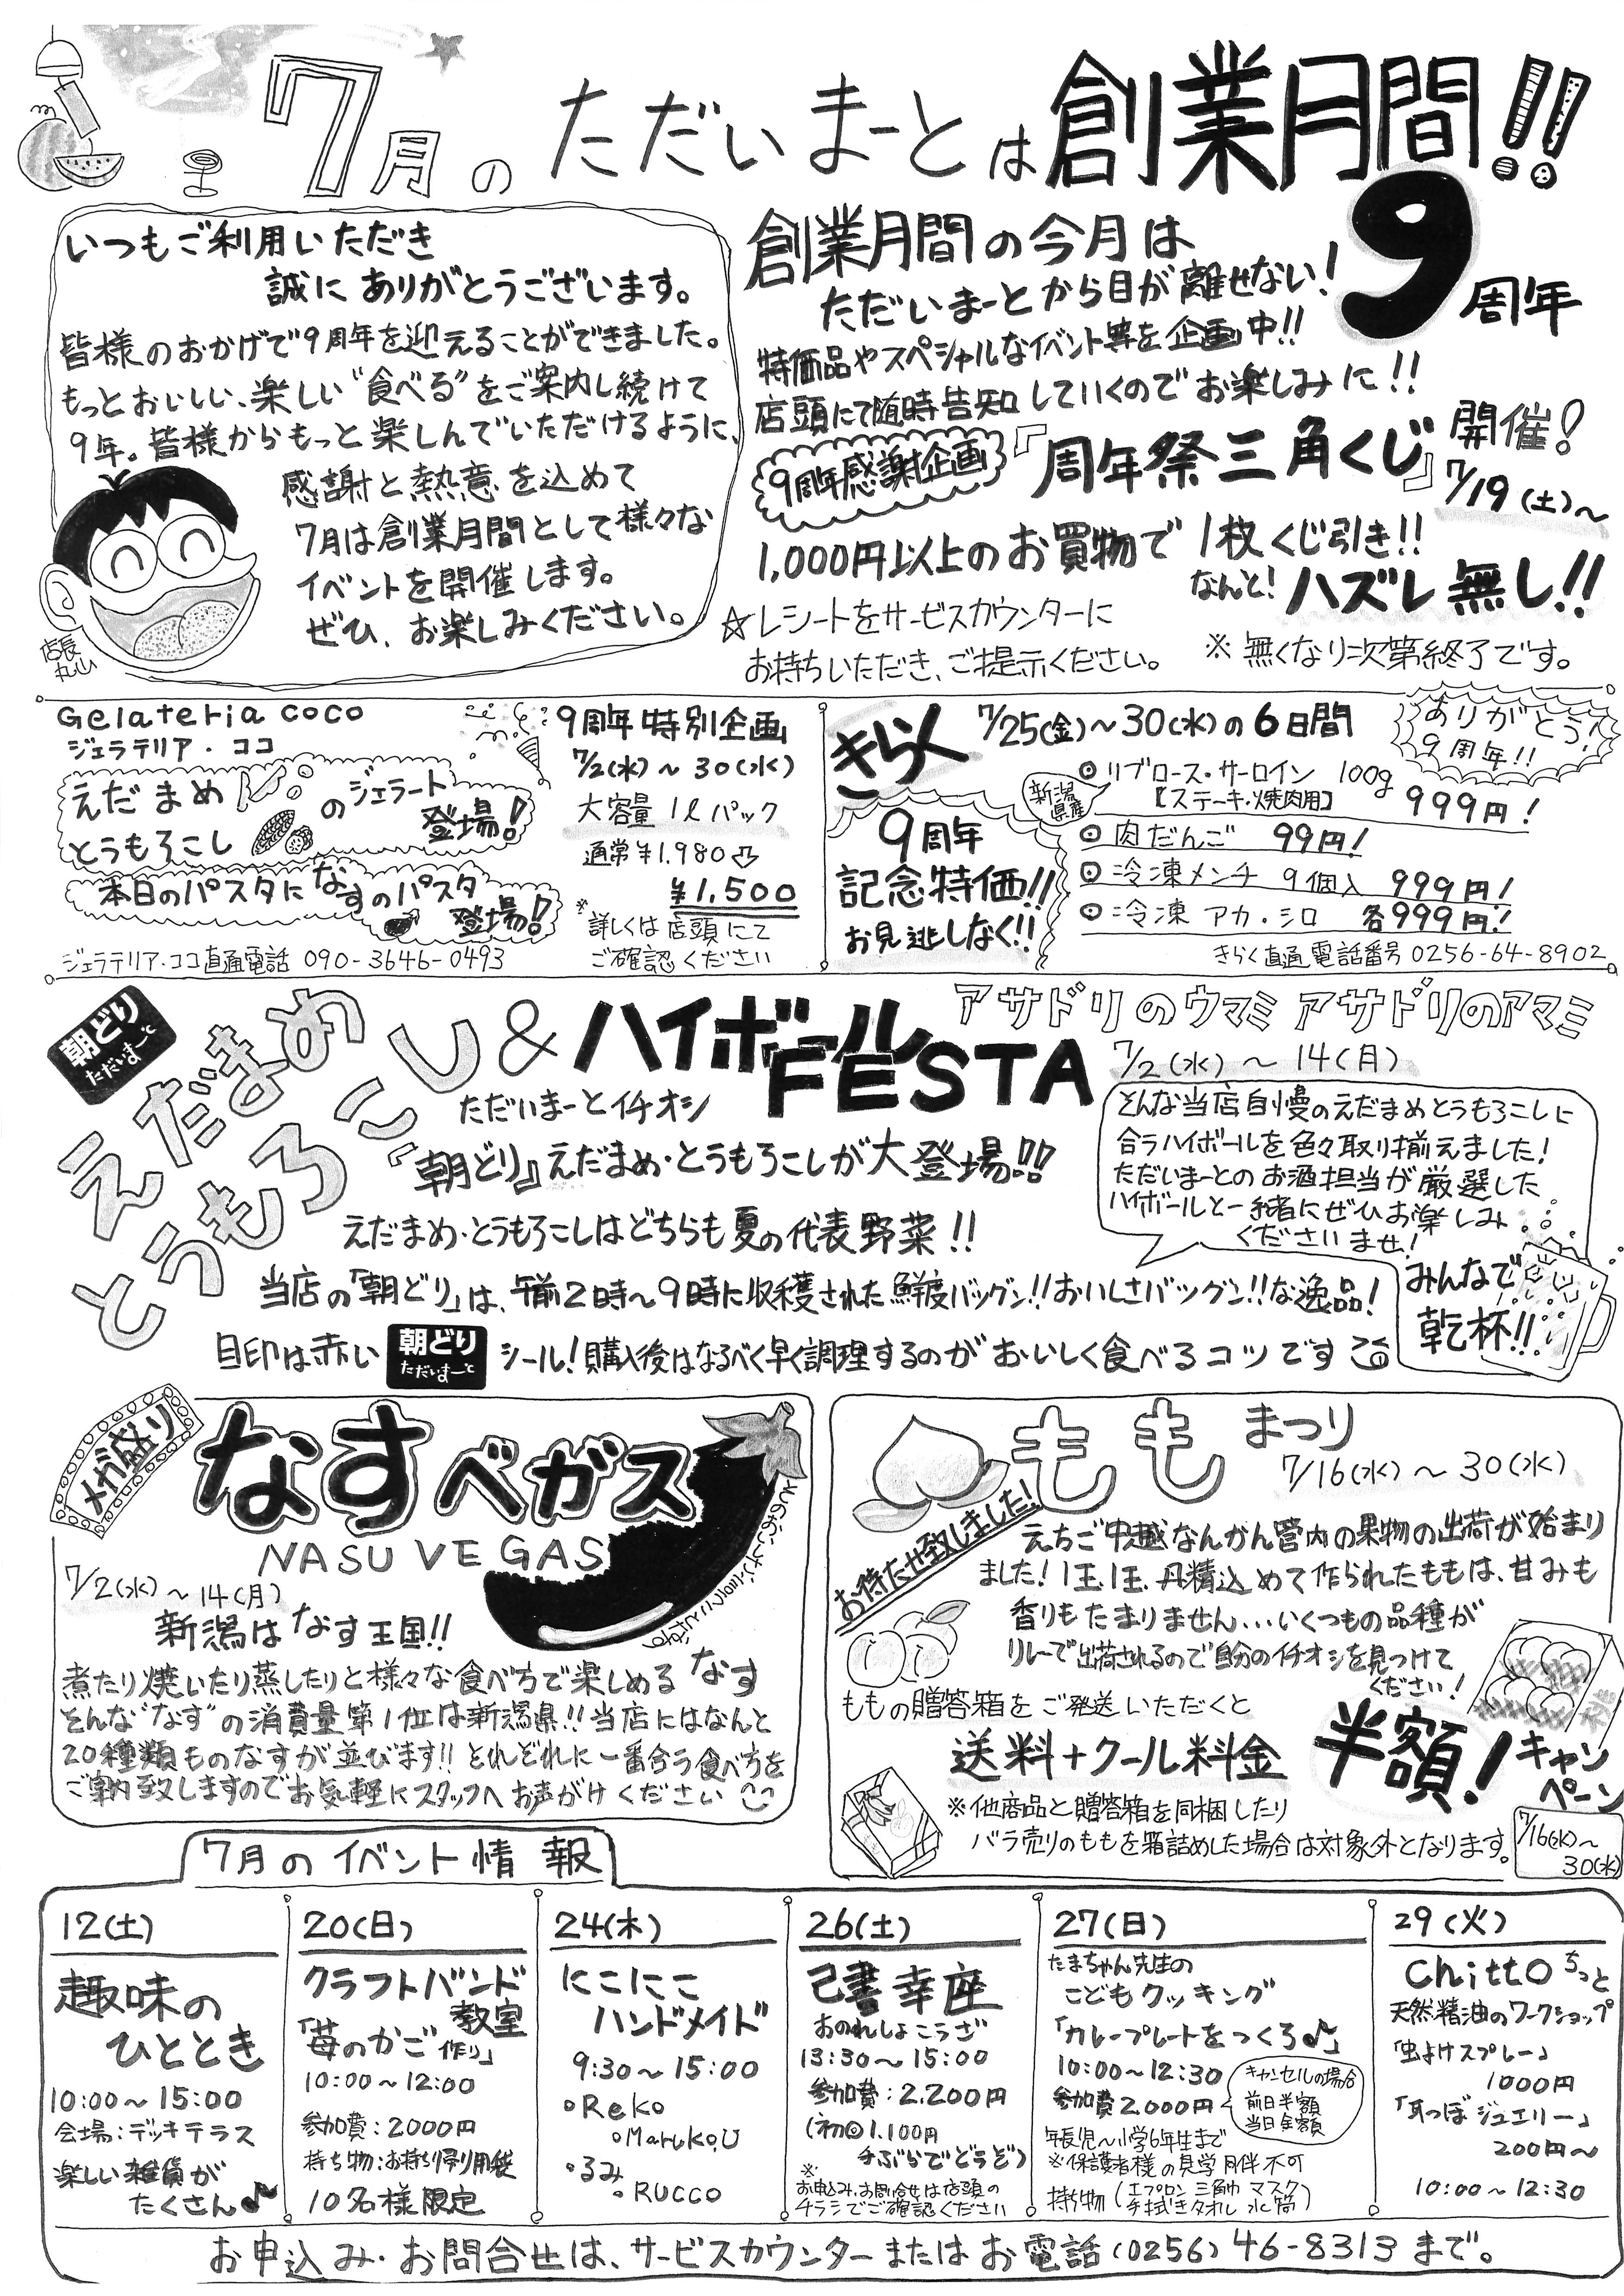 7月のただいまーとは創業月間!!
いつもご利用いただき
誠にありがとうございます。
皆様のおかげで9周年を迎えることができました。
もっとおいしい、楽しい"食べる"をご案内し続けて
9年。皆様からもっと楽しんでいただけるように、
感謝と熱意を込めて
7月は創業月間として様々な
イベントを開催します。
ぜひ、お楽しみください。
店長
丸山
創業月間の今月は
ただいまーとから目が離せない!
9周年
特価品やスペシャルなイベント等を企画中!!
店頭にて随時告知していくのでお楽しみに!!
9周年感謝企画
『周年祭三角くじ』開催!
7/19(土)〜
1,000円以上のお買物で1枚くじ引き!!
なんと!ハズレ無し!!
☆レシートをサービスカウンターに
お持ちいただき、ご提示ください。
※無くなり次第終了です。
Gelateria coco
ジェラテリア・ココ
えだまめ
とうもろこし
のジェラート
登場!
本日のパスタになすのパスタ
登場!
ジェラテリア・ココ直通電話 090-3646-0493
9周年特別企画
7/2(水)〜30(水)
大容量1ℓパック
通常¥1,980
¥1,500
※詳しくは店頭にて
ご確認ください
きらく
9周年
記念特価!!
お見逃しなく!!
7/25(金)〜30(水)の6日間
ありがとう!
9周年!!
新潟県産
◎リブロース・サーロイン 100g
【ステーキ・焼肉用】 999円!
◎肉だんご 99円!
◎冷凍メンチ 9個入 999円!
◎冷凍アカ・シロ 各999円!
きらく直通電話番号 0256-64-8902
朝どり
ただいまーと
えだまめ
とうもろこし&ハイボールFESTA
アサドリのウマミ アサドリのアマミ
7/2(水)〜14(月)
ただいまーとイチオシ
『朝どり』えだまめ・とうもろこしが大登場!!
えだまめ・とうもろこしはどちらも夏の代表野菜!!
当店の「朝どり」は、午前2時〜9時に収穫された鮮度バツグン!!おいしさバツグン!!な逸品!
目印は赤い朝どりただいまーとシール!購入後はなるべく早く調理するのがおいしく食べるコツです
そんな当店自慢のえだまめとうもろこしに
合うハイボールを色々取り揃えました!
ただいまーとのお酒担当が厳選した
ハイボールと一緒にぜひお楽しみ
くださいませ!
みんなで
乾杯!!
メガ盛り
なすベガス
NASU VEGAS
7/2(水)〜14(月)
新潟はなす王国!!
煮たり焼いたり蒸したりと様々な食べ方で楽しめるなす
そんな"なす"の消費量第1位は新潟県!!当店にはなんと
20種類ものなすが並びます!!それぞれに一番合う食べ方を
ご案内致しますのでお気軽にスタッフへお声がけください
ももまつり
7/16(水)〜30(水)
お待たせ致しました!
えちご中越なんかん管内の果物の出荷が始まり
ました!1玉、1玉、丹精込めて作られたももは、甘みも
香りもたまりません...いくつもの品種が
リレーで出荷されるので自分のイチオシを見つけて
ください!
桃
ももの贈答箱をご発送いただくと
送料+クール料金 半額!キャンペーン
※他商品と贈答箱を同梱したり
バラ売りのももを箱詰めした場合は対象外となります。
7/16(水)〜
30(水)
7月のイベント情報
12(土)
趣味の
ひととき
10:00〜15:00
会場:デッキテラス
楽しい雑貨が
たくさん♪
20(日)
クラフトバンド
教室
「苺のかご作り」
10:00〜12:00
参加費:2000円
持ち物:お持ち帰り用袋
10名様限定
24(木)
にこにこ
ハンドメイド
9:30〜15:00
○Reko
○MarukoU
○るみ
○RUCCO
26(土)
己書幸座
おのれしょこうざ
13:30〜15:00
参加費:2,200円
(初回1,100円
手ぶらでどうぞ)
※お申込み、お問合せは店頭の
チラシでご確認ください
27(日)
たまちゃん先生の
こどもクッキング
「カレープレートをつくろ♪」
10:00〜12:30
参加費2,000円
キャンセルの場合
前日半額
当日全額
年長児〜小学6年生まで
※保護者様の見学同伴不可
持ち物(エプロン 三角巾 マスク
手拭きタオル 水筒)
29(火)
chittoちっと
天然精油のワークショップ
「虫よけスプレー」
1000円
「耳つぼジュエリー」
200円〜
10:00〜12:30
お申込み・お問合せは、サービスカウンターまたはお電話(0256)46-8313まで。